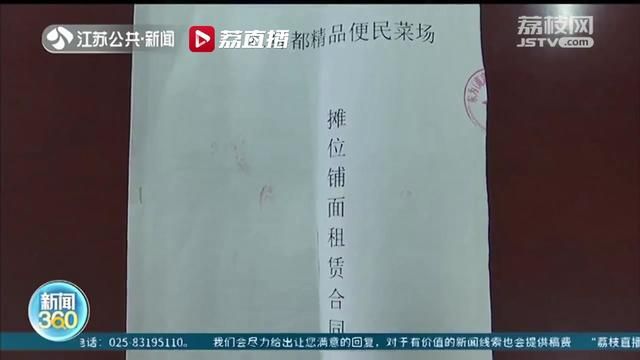 江苏公共·新闻
荔直播
荔枝网
JSTV.com
都精品便民菜场
摊位铺面租赁合同
新闻
360
电话：025-83195110。 我们会尽力给出让您满意的回复，对于有价值的新闻线索也会提供稿费 "荔枝直播